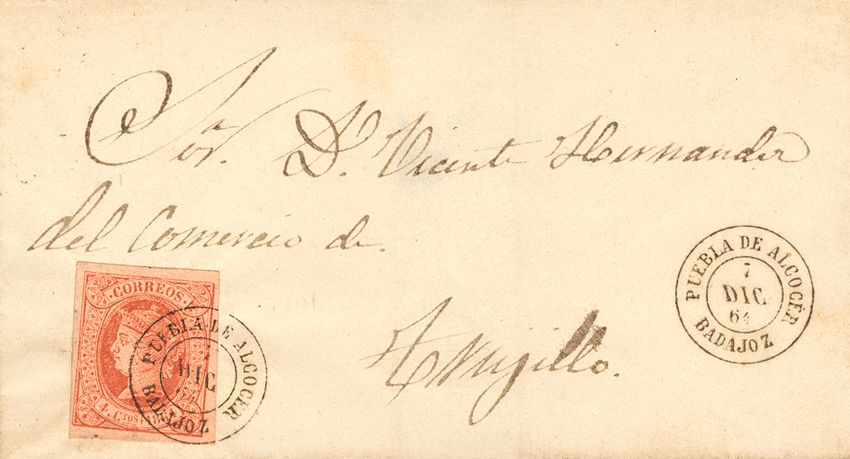 Sor. Dn. Vicente Hernandez
del Comercio de.
Trujillo.
CORREOS.
4. CTOS
PUEBLA DE ALCOCER
DIC
64
BADAJOZ
PUEBLA DE ALCOCER
7
DIC
64
BADAJOZ